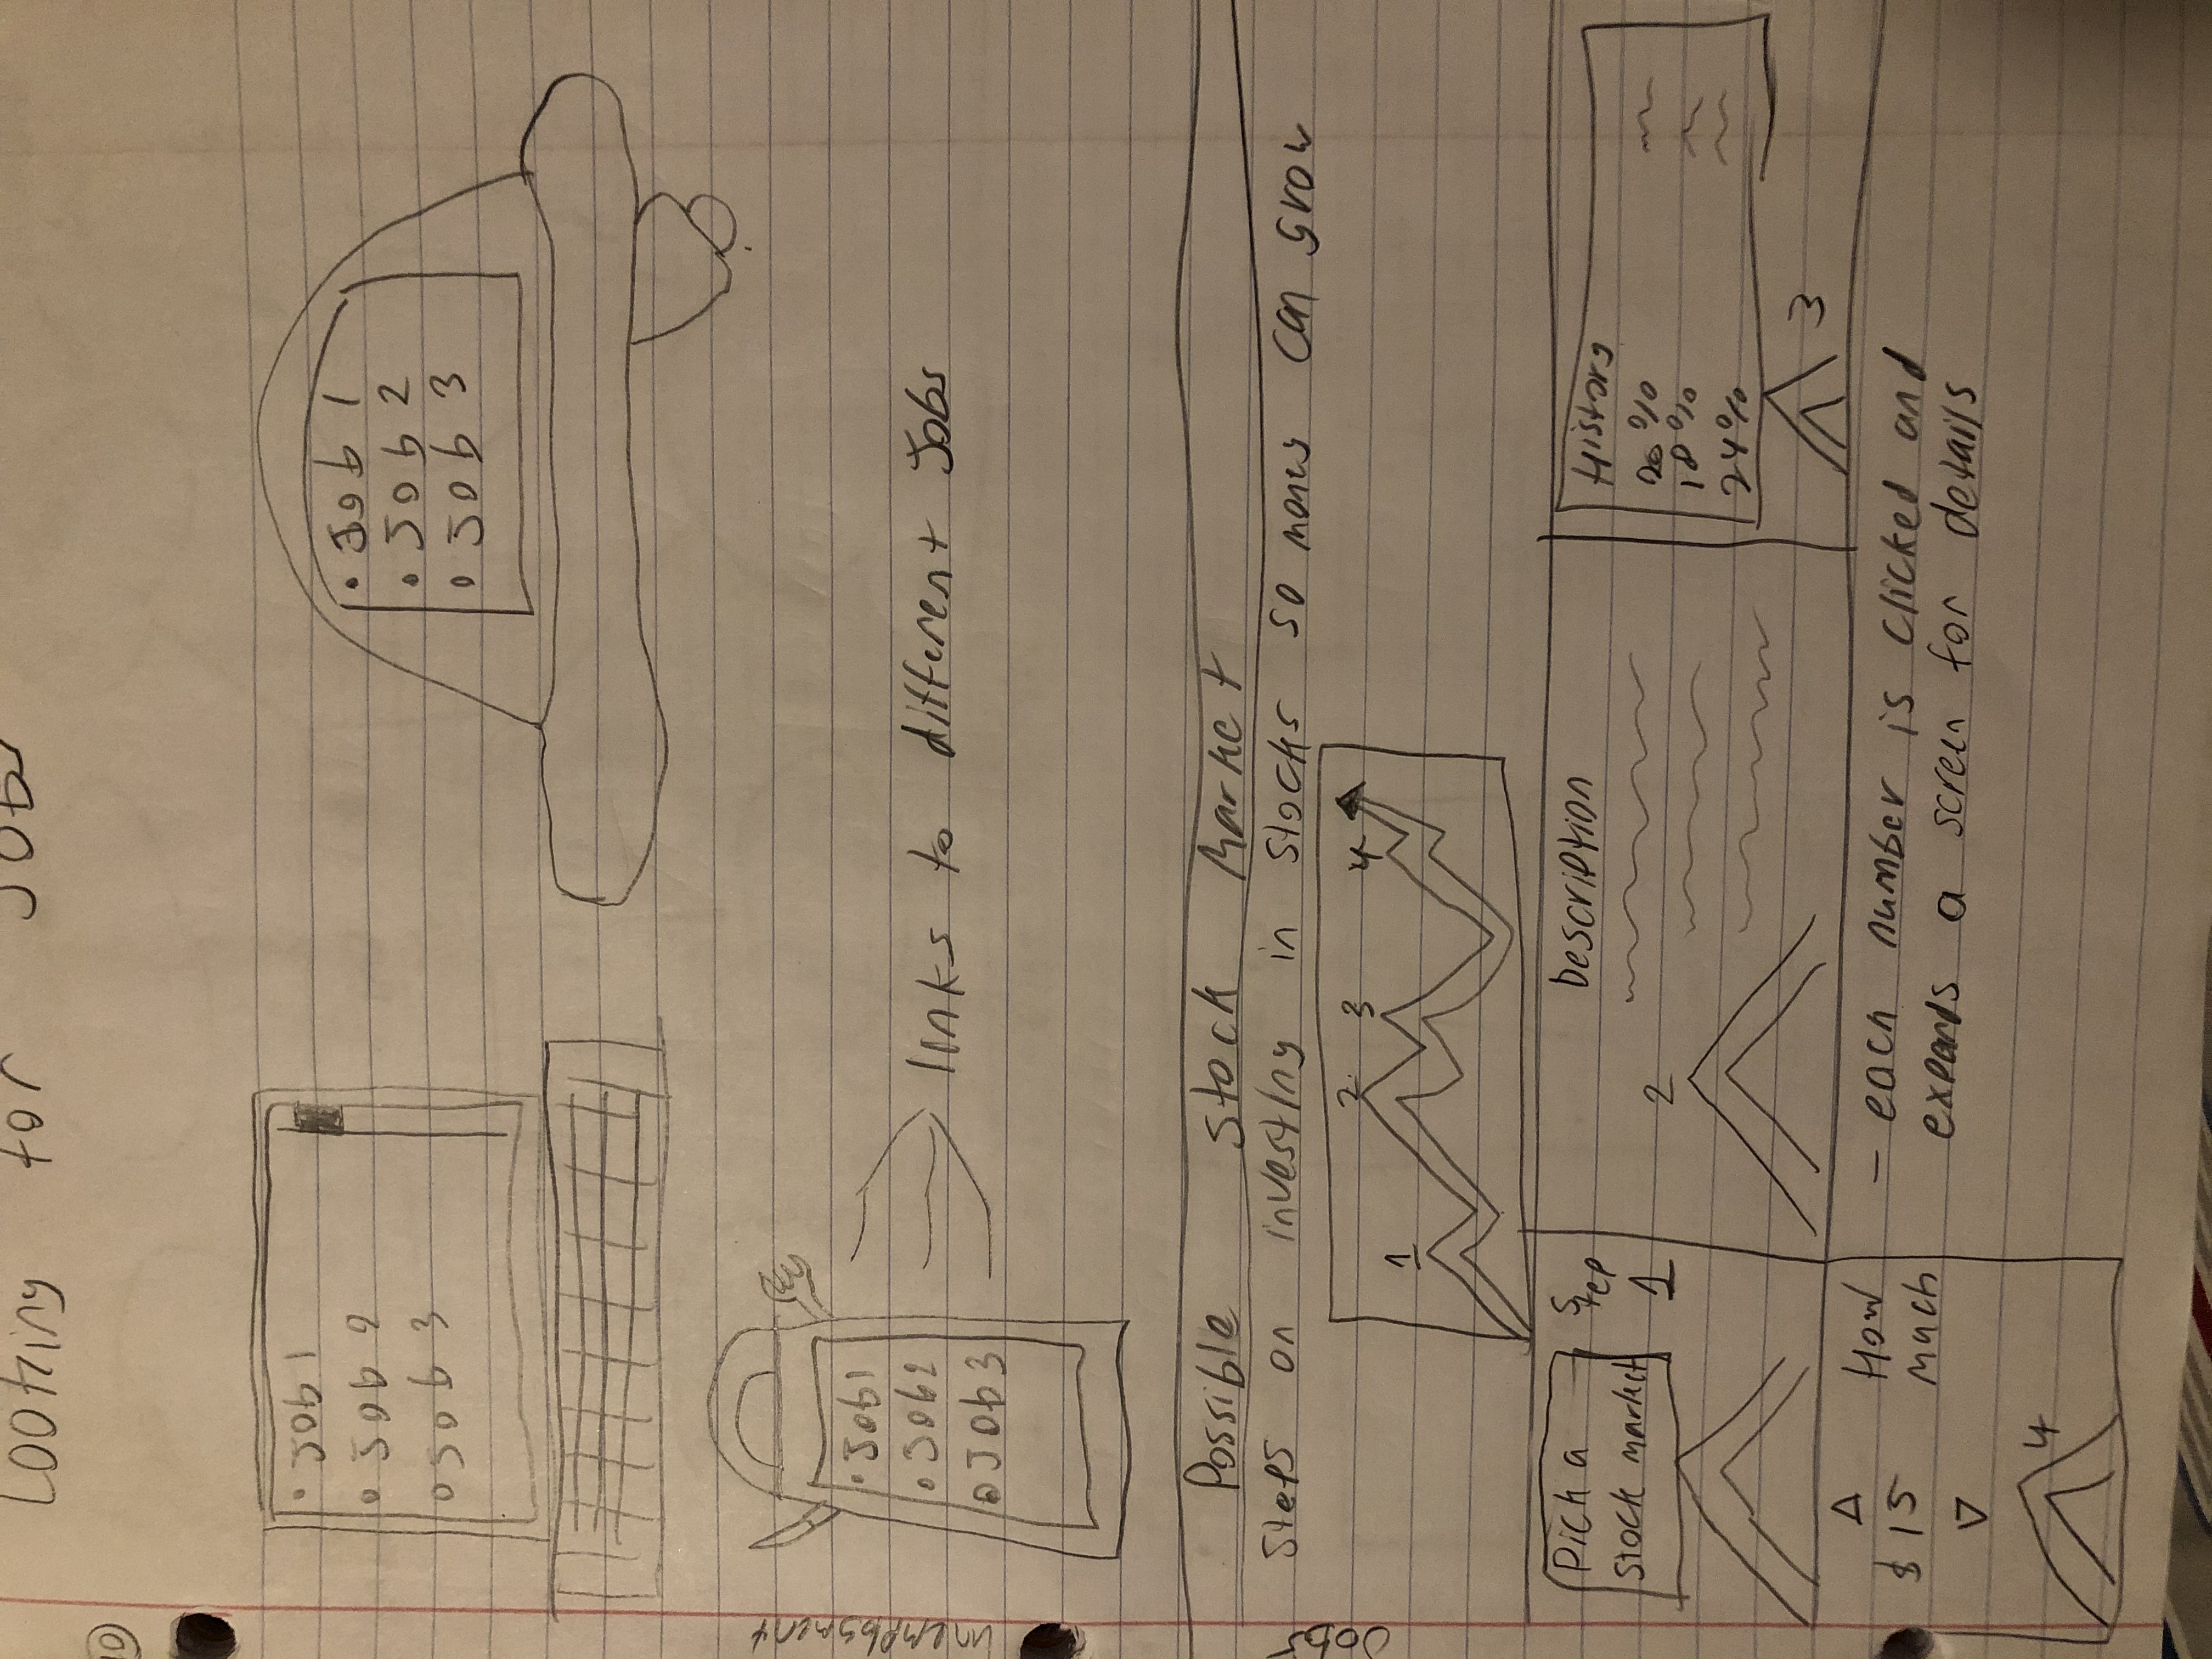 Looking for Jobs
10
• Job 1
• Job 2
• Job 3
• Job 1
• Job 2
• Job 3
unemployment
• Job 1
• Job 2
• Job 3
links to different Jobs
Possible Stock Market
Steps on investing in stocks so money can grow
Jobs
1 2 3 4
Pick a
stock market
Step
1
Description
2
History
20%
18%
24%
3
△
$15
▽
How
much
4
- each number is clicked and
expands a screen for details